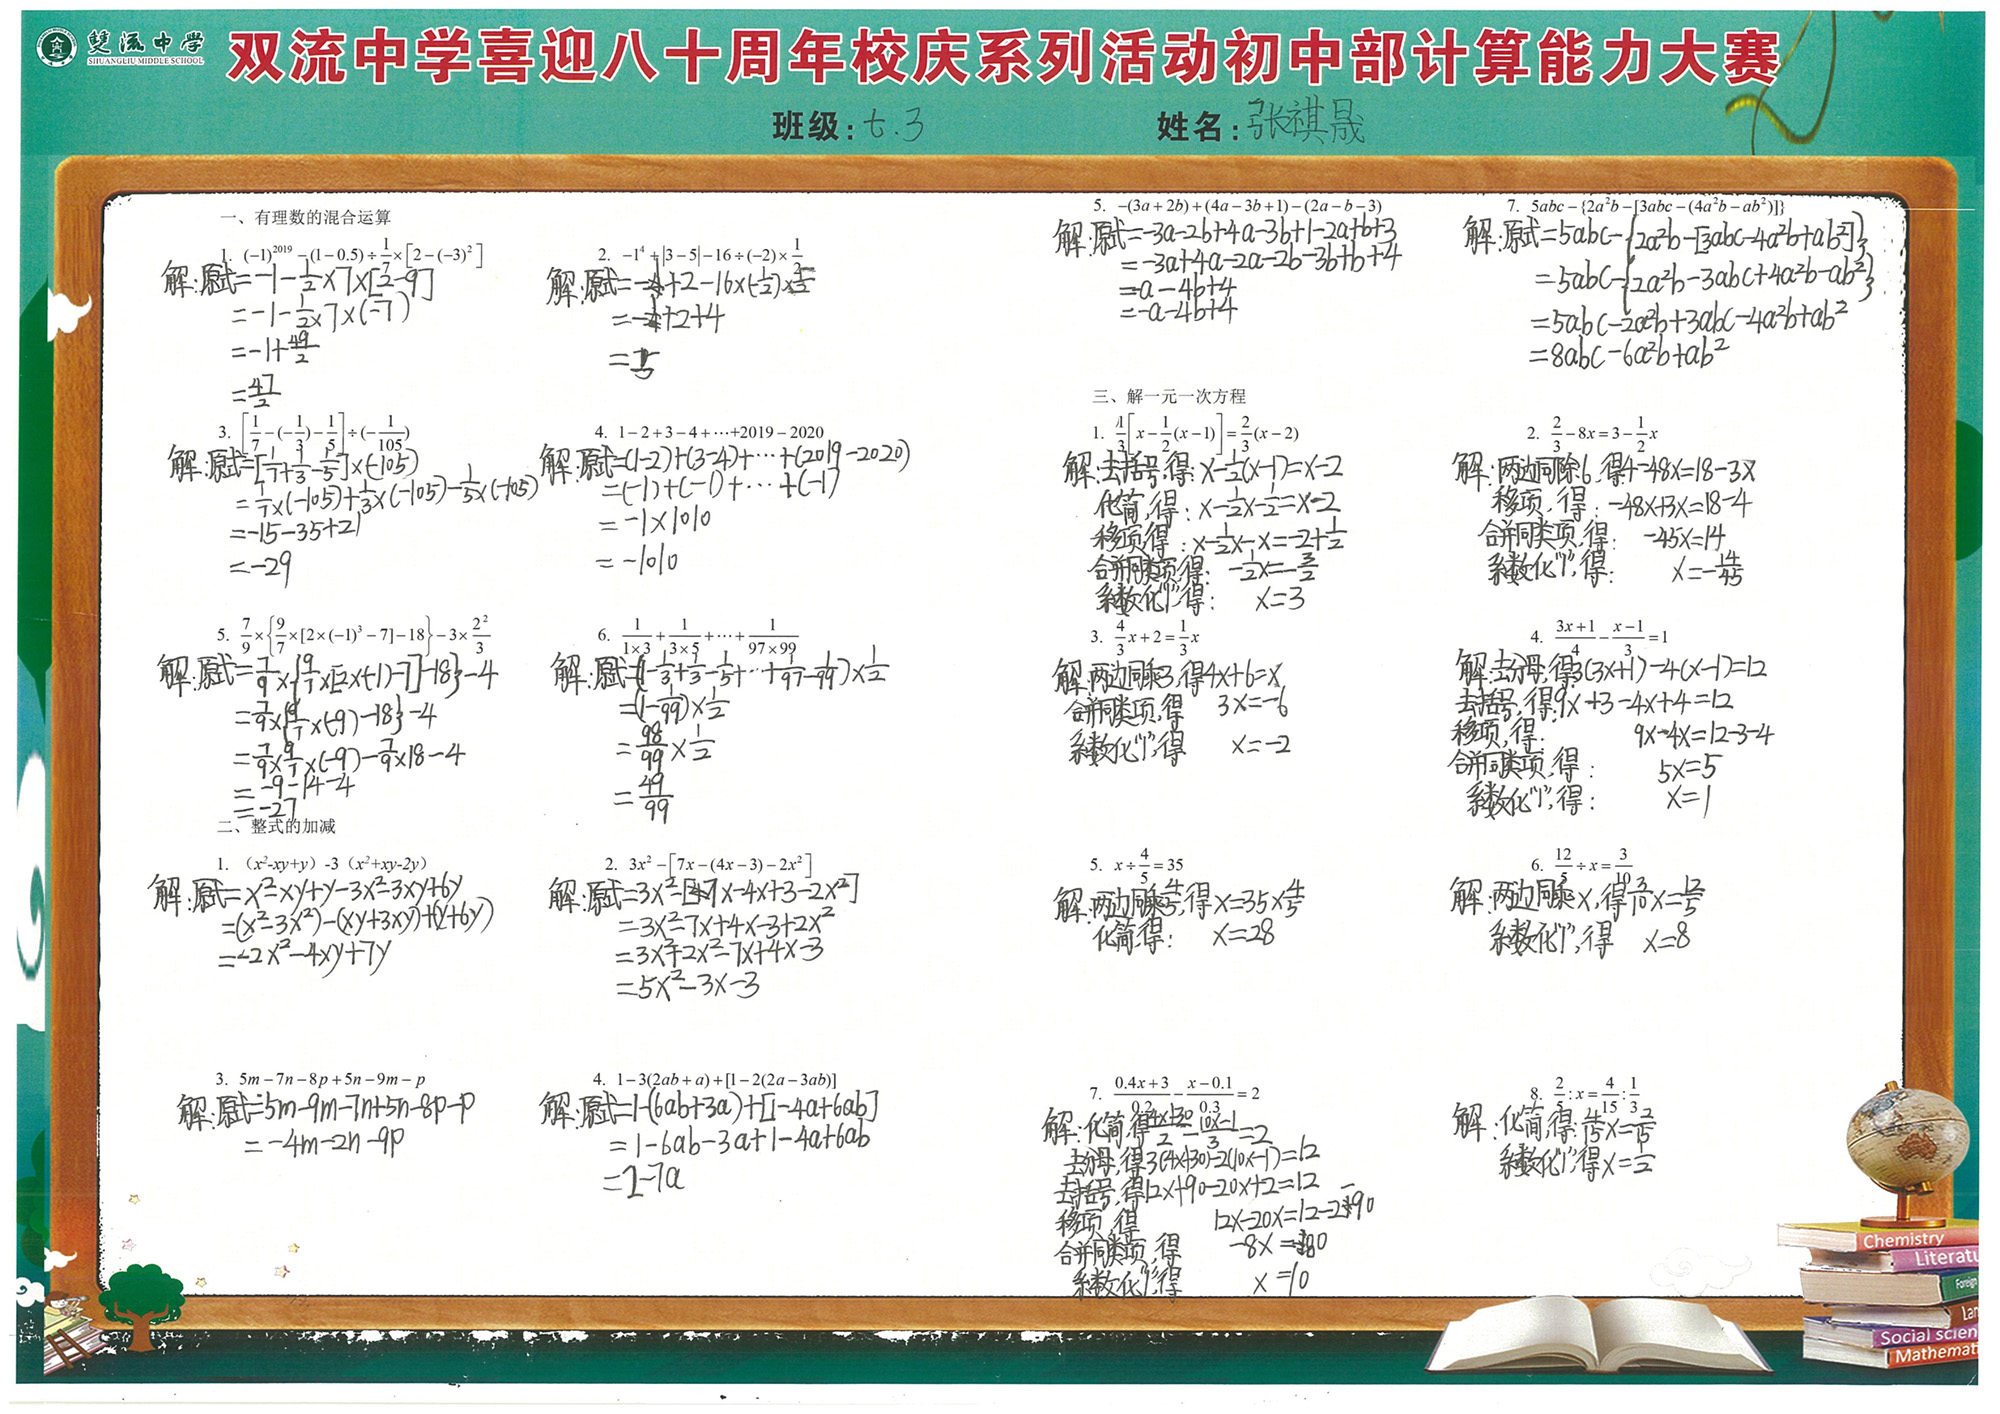 雙流中學
SHUANGLIU MIDDLE SCHOOL
双流中学喜迎八十周年校庆系列活动初中部计算能力大赛
班级：七.3 姓名：张祺晟
一、有理数的混合运算
1. (-1)^2019 -(1-0.5)÷1/7×[2-(-3)^2]
解:原式=-1-1/2×7×[2-9]
=-1-1/2×7×(-7)
=-1+49/2
=47/2
2. -1^4+|3-5|-16÷(-2)×1/2
解:原式=-1+2-16×(-1/2)×1/2
=-1+2+4
=5
3. [1/7-(-1/3)-1/5]÷(-1/105)
解:原式=[1/7+1/3-1/5]×(-105)
=1/7×(-105)+1/3×(-105)-1/5×(-105)
=-15-35+21
=-29
4. 1-2+3-4+⋯+2019-2020
解:原式=(1-2)+(3-4)+⋯+(2019-2020)
=(-1)+(-1)+⋯+(-1)
=-1×1010
=-1010
5. 7/9×{9/7×[2×(-1)^3-7]-18}-3×2^2/3
解:原式=7/9×{9/7×[2×(-1)-7]-18}-4
=7/9×{9/7×(-9)-18}-4
=7/9×9/7×(-9)-7/9×18-4
=-9-14-4
=-27
6. 1/1×3+1/3×5+⋯+1/97×99
解:原式=(1-1/3+1/3-1/5+⋯+1/97-1/99)×1/2
=(1-1/99)×1/2
=98/99×1/2
=49/99
二、整式的加减
1. （x²-xy+y）-3（x²+xy-2y）
解:原式=x²-xy+y-3x²-3xy+6y
=(x²-3x²)-(xy+3xy)+(y+6y)
=-2x²-4xy+7y
2. 3x²-[7x-(4x-3)-2x²]
解:原式=3x²-[7x-4x+3-2x²]
=3x²-7x+4x-3+2x²
=3x²+2x²-7x+4x-3
=5x²-3x-3
3. 5m-7n-8p+5n-9m-p
解:原式=5m-9m-7n+5n-8p-p
=-4m-2n-9p
4. 1-3(2ab+a)+[1-2(2a-3ab)]
解:原式=1-(6ab+3a)+[1-4a+6ab]
=1-6ab-3a+1-4a+6ab
=2-7a
5. -(3a+2b)+(4a-3b+1)-(2a-b-3)
解:原式=-3a-2b+4a-3b+1-2a+b+3
=-3a+4a-2a-2b-3b+b+4
=-a-4b+4
=-a-4b+4
7. 5abc-{2a²b-[3abc-(4a²b-ab²)]}
解:原式=5abc-{2a²b-[3abc-4a²b+ab²]}
=5abc-{2a²b-3abc+4a²b-ab²}
=5abc-2a²b+3abc-4a²b+ab²
=8abc-6a²b+ab²
三、解一元一次方程
1. 1/3[x-1/2(x-1)]=2/3(x-2)
解:去括号,得:x-1/2(x-1)=x-2
化简,得:x-1/2x-1/2=x-2
移项,得:x-1/2x-x=-2+1/2
合并同类项,得:-1/2x=-3/2
系数化"1",得:x=3
2. 2/3-8x=3-1/2x
解:两边同除6,得4-48x=18-3x
移项,得:-48x+3x=18-4
合并同类项,得:-45x=14
系数化"1",得:x=-14/45
3. 4/3x+2=1/3x
解:两边同乘3,得4x+6=x
合并同类项,得3x=-6
系数化"1",得x=-2
4. 3x+1/4-x-1/3=1
解:去分母,得:3(3x+1)-4(x-1)=12
去括号,得:9x+3-4x+4=12
移项,得:9x-4x=12-3-4
合并同类项,得:5x=5
系数化"1",得:x=1
5. x÷4/5=35
解:两边同乘4/5,得x=35×4/5
化简,得:x=28
6. 12/5÷x=3/10
解:两边同乘x,得3/10x=12/5
系数化"1",得x=8
7. 0.4x+3/0.2-x-0.1/0.3=2
解:化简,得4x+30/2-10x-1/3=2
去分母,得3(4x+30)-2(10x-1)=12
去括号,得12x+90-20x+2=12
移项,得12x-20x=12-2-90
合并同类项,得-8x=-80
系数化"1",得x=10
8. 2/5:x=4/15:1/3
解:化简,得:4/15x=2/15
系数化"1",得x=1/2
Chemistry
Literatu
Foreign
Lan
Social scien
Mathemat